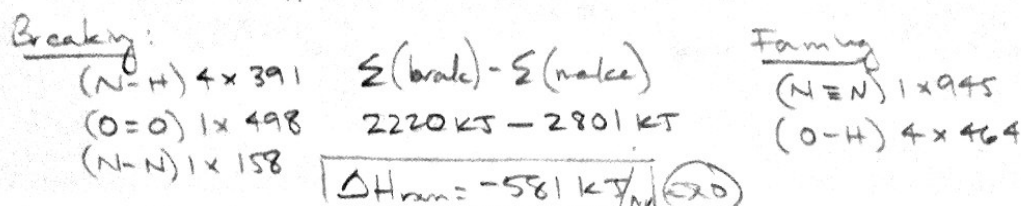 Breaking:
(N-H) 4 x 391
(O=O) 1x 498
(N-N) 1 x 158
Σ(break) - Σ(make)
2220 KJ - 2801 KJ
ΔHrxn = -581 KJ/ exo
Forming
(N≡N) 1 x 945
(O-H) 4 x 464